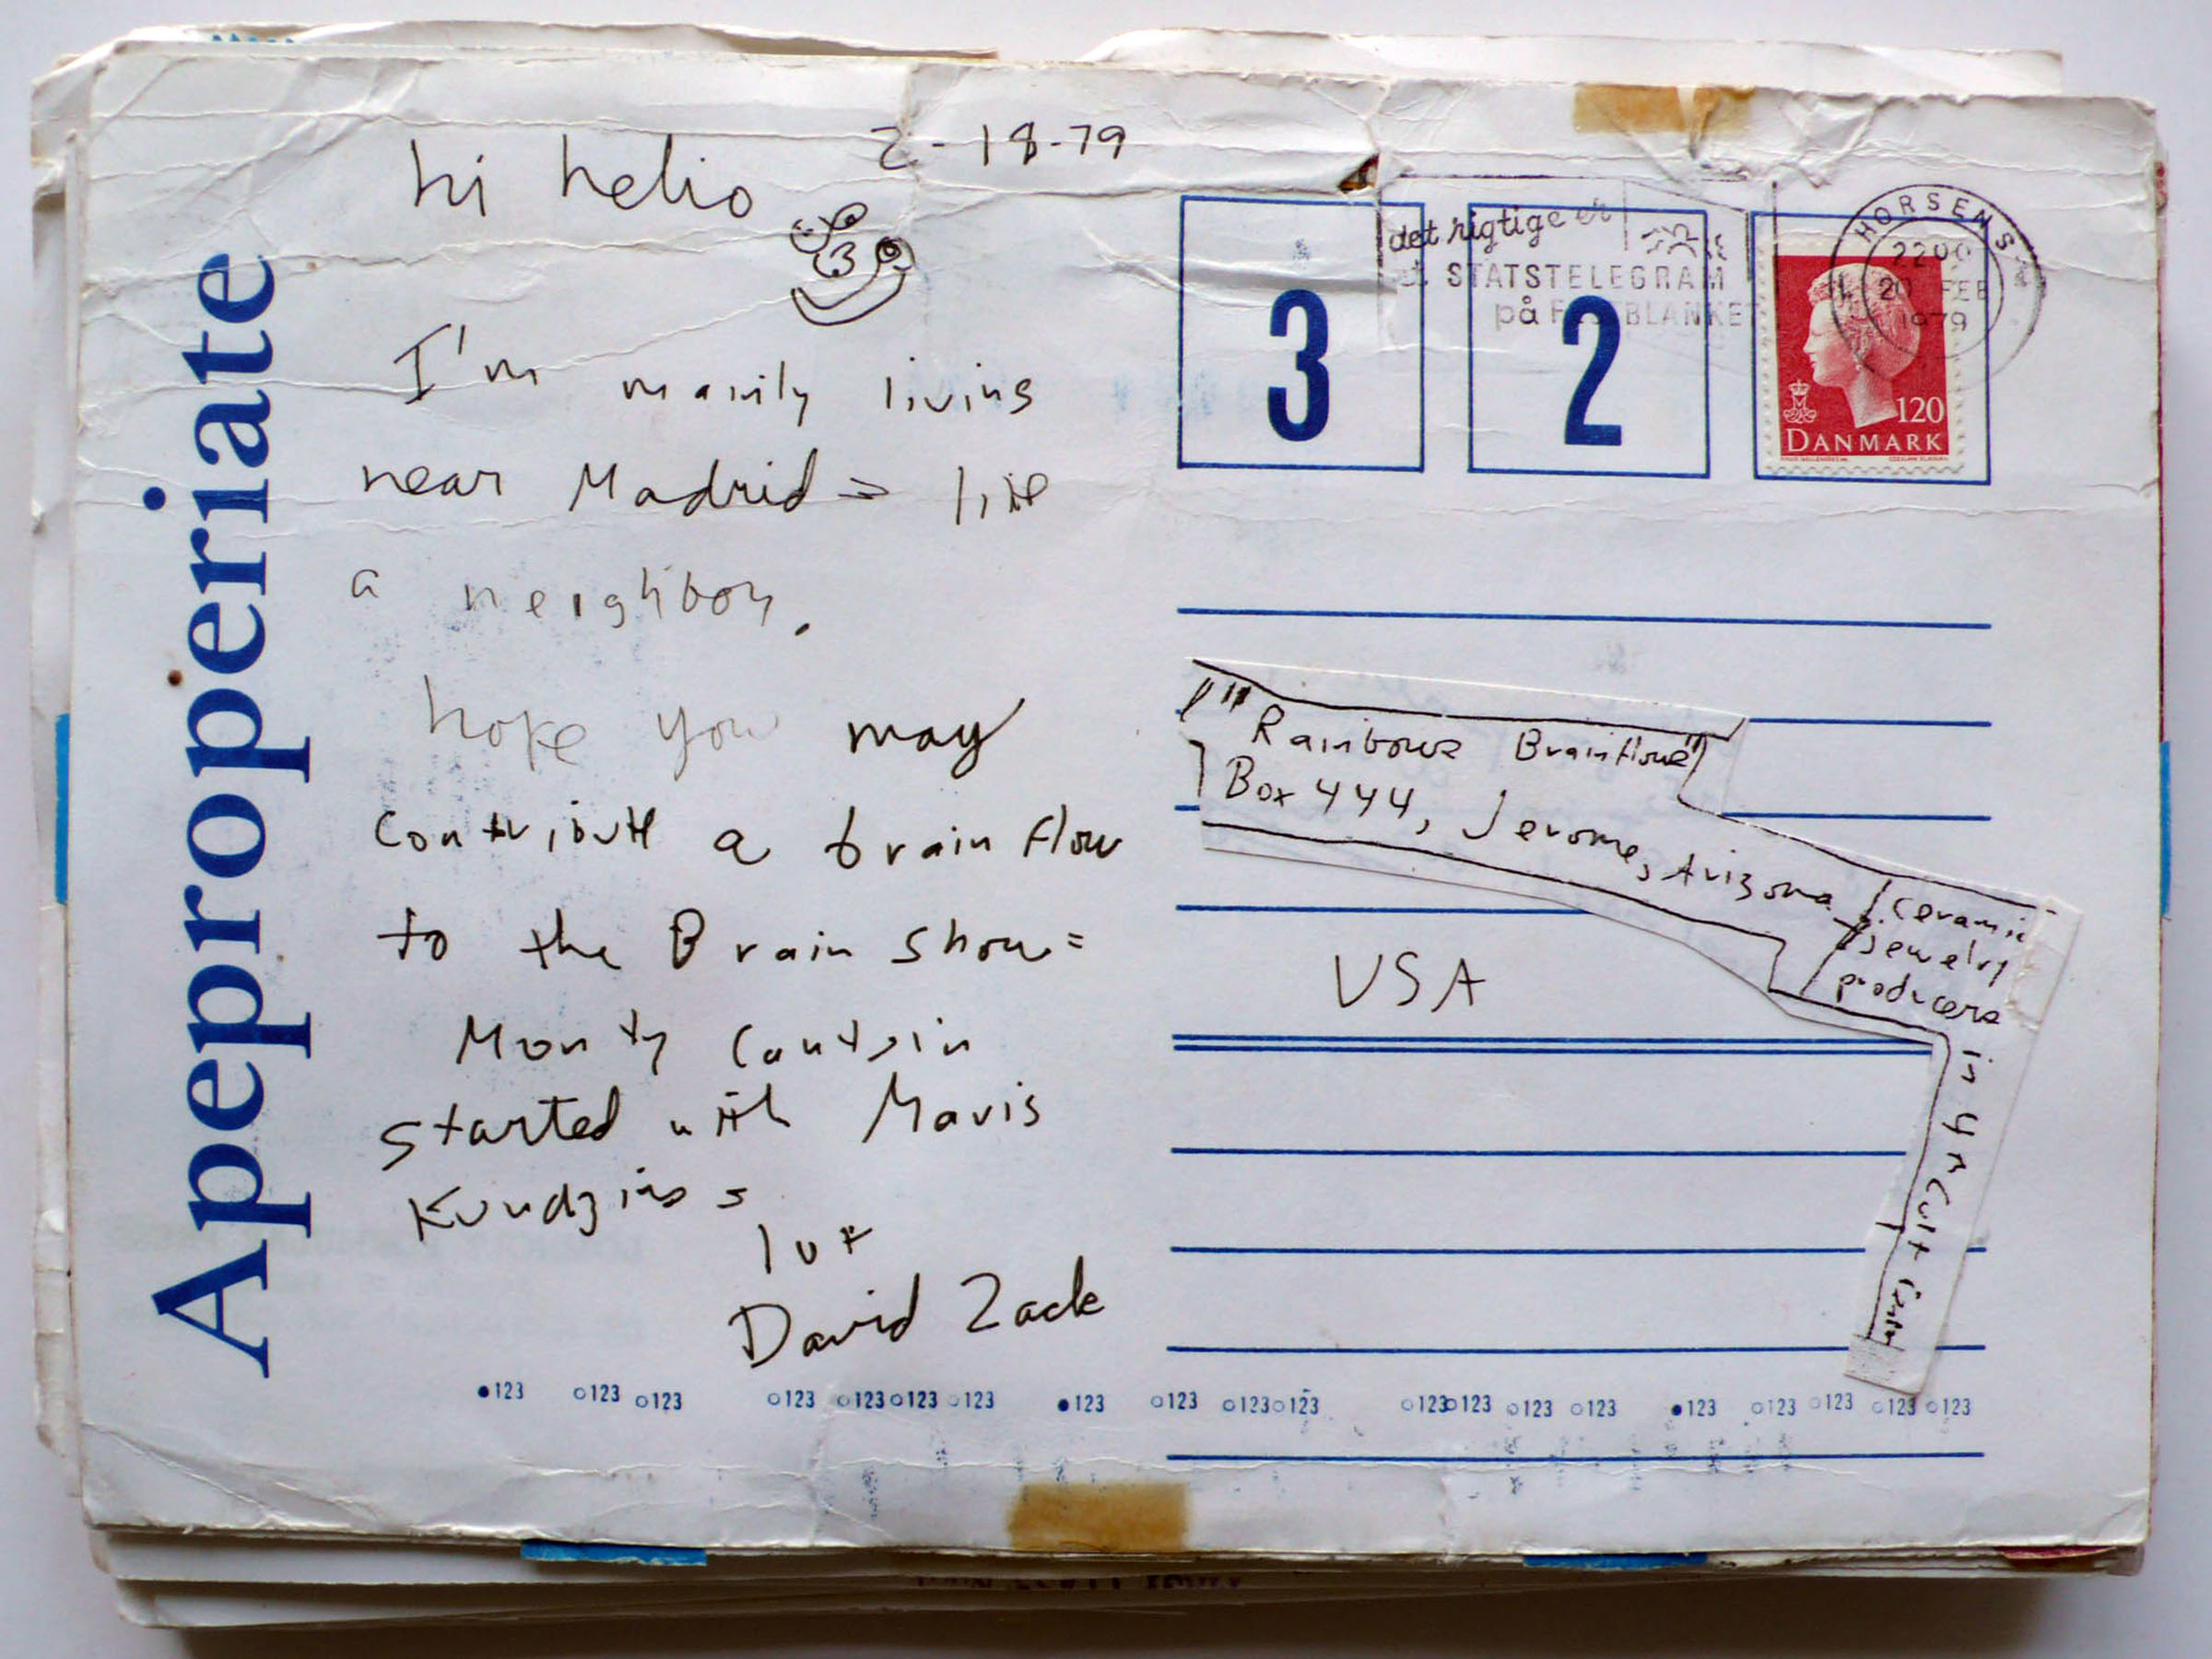 Apeproperiate
2-18-79
hi helio
I'm mainly living
near Madrid = like
a neighbor.
hope you may
contribute a brain flow
to the Brain show =
Monty Cantsin
started with Maris
Kundzins =
luv
David Zack
3
2
det rigtige er
STATSTELEGRAM
på FESTBLANKET
HORSENS
2200
20 FEB
1979
120
DANMARK
"Rainbows Brainflows"
Box 444, Jerome, Arizona
ceramic
jewelry
producers
in
USA
●123 ○123 ○123 ○123 ○123 ○123 ○123 ●123 ○123 ○123 ○123 ○123 ○123 ○123 ○123 ●123 ○123 ○123 ○123 ○123